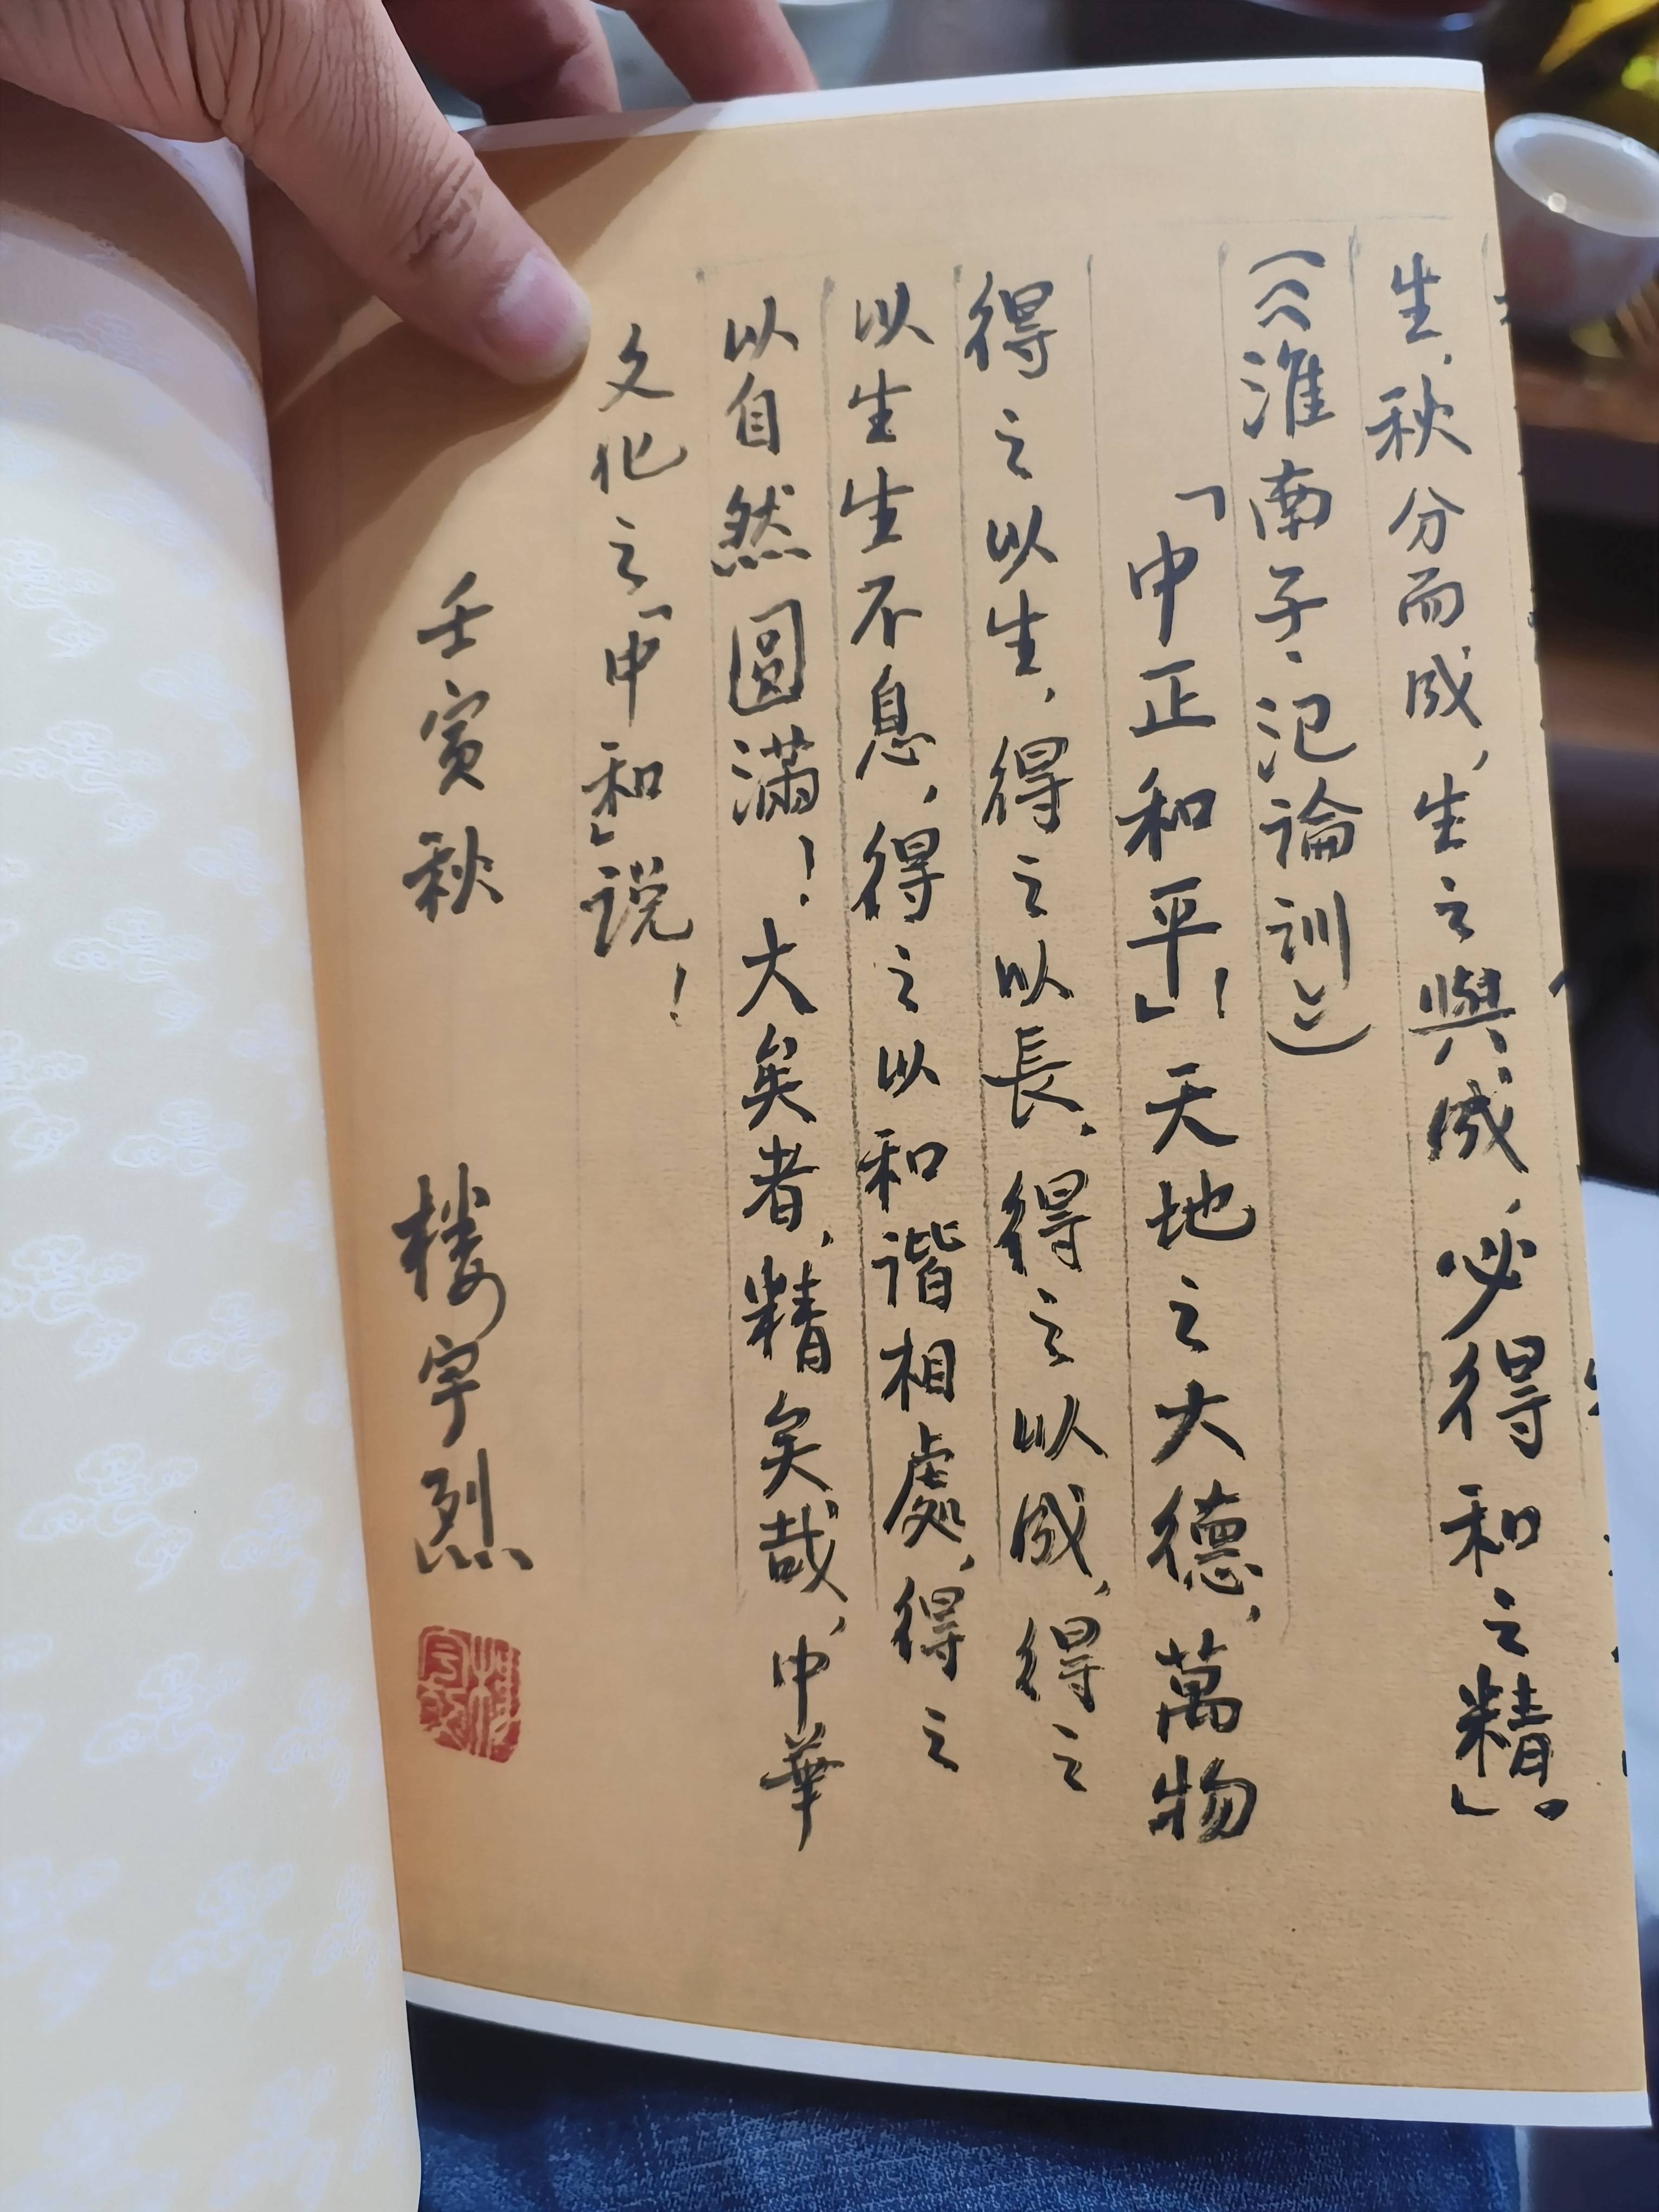 生，秋分而成，生之與成，必得和之精」。
（《淮南子·氾論訓》）
「中正和平」！天地之大德，萬物
得之以生，得之以長，得之以成，得之
以生生不息，得之以和谐相處，得之
以自然圓滿！大矣者，精矣哉，中華
文化之「中和」说！
壬寅秋
楼宇烈